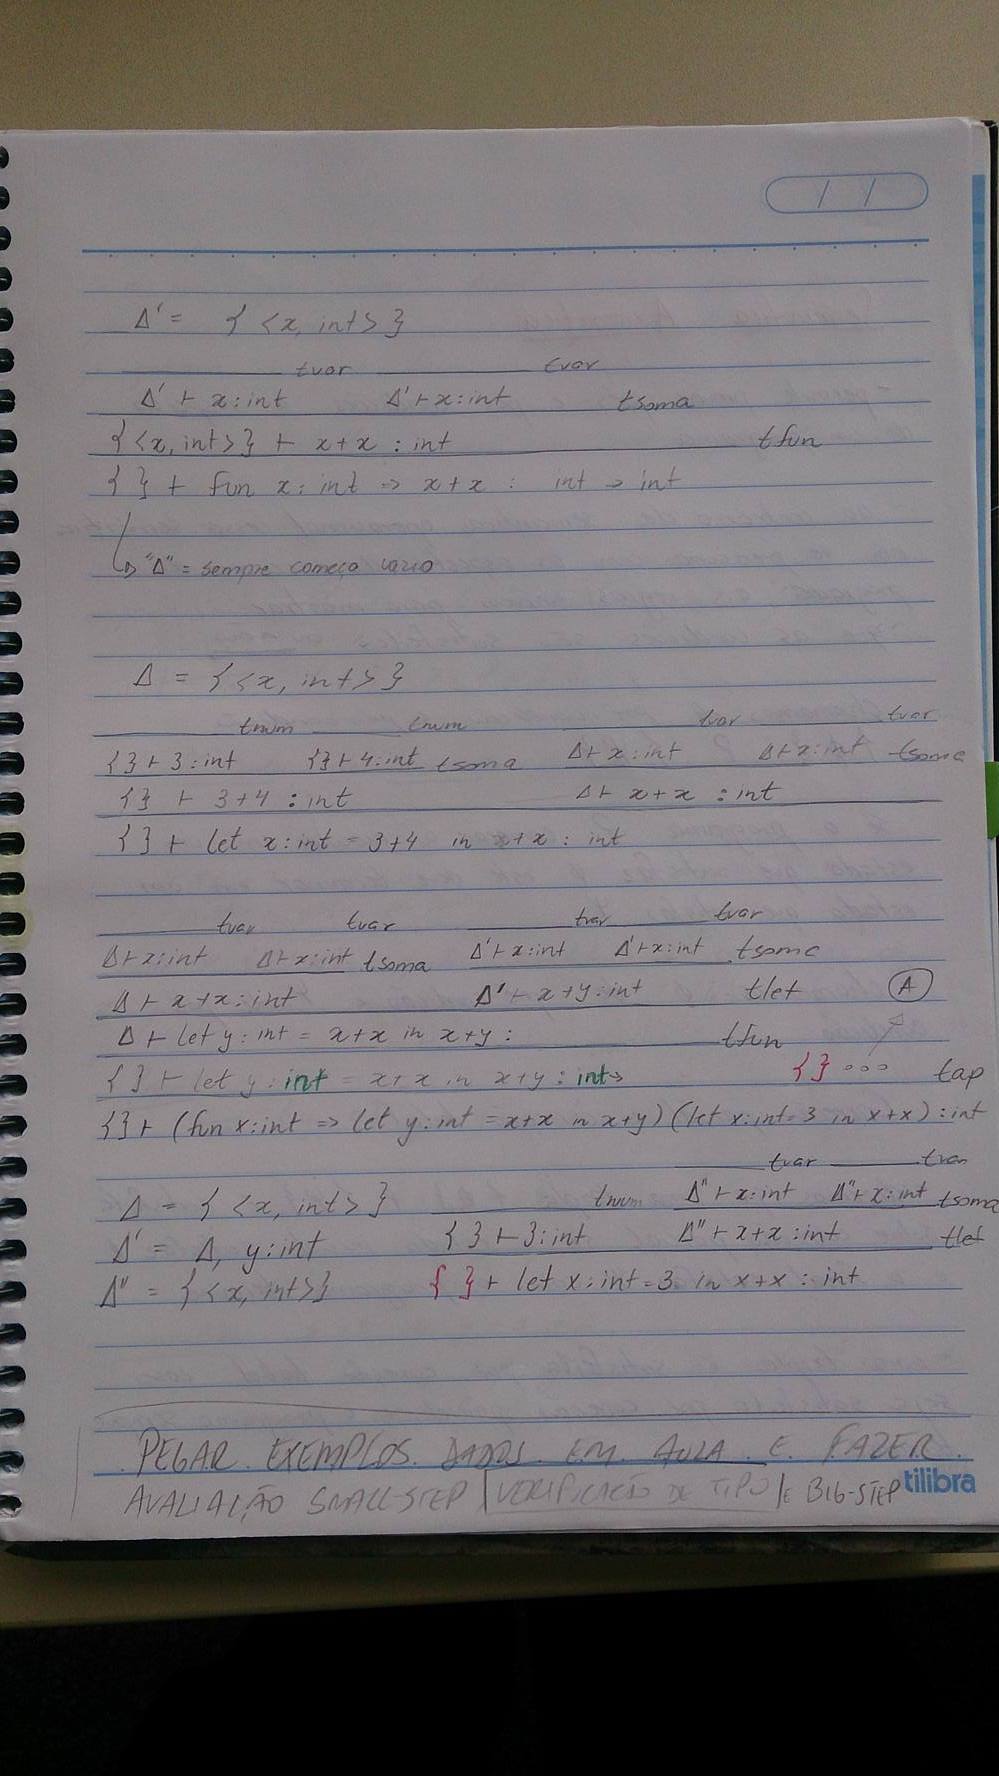 Δ' = { <x, int> }
tvar tvar
Δ' ⊢ x:int Δ' ⊢ x:int tsoma
{<x, int>} ⊢ x+x : int tfun
{ } ⊢ fun x: int => x+x : int → int
↳ "Δ" = sempre começa vazio
Δ = {<x, int>}
tnum tnum tvar tvar
{} ⊢ 3:int {} ⊢ 4:int tsoma Δ ⊢ x:int Δ ⊢ x:int tsoma
{} ⊢ 3+4 : int Δ ⊢ x+x : int
{ } ⊢ let x:int = 3+4 in x+x : int
tvar tvar tvar tvar
Δ ⊢ x:int Δ ⊢ x:int tsoma Δ' ⊢ x:int Δ' ⊢ x:int tsoma
Δ ⊢ x+x:int Δ' ⊢ x+y:int tlet A
Δ ⊢ let y:int = x+x in x+y : tfun
{ } ⊢ let y:int = x+x in x+y : int→ {} ... tap
{} ⊢ (fun x:int => let y:int = x+x in x+y) (let x:int=3 in x+x) : int
tvar tvar
Δ = { <x, int> } tnum Δ'' ⊢ x:int Δ'' ⊢ x:int tsoma
Δ' = Δ, y:int { } ⊢ 3:int Δ'' ⊢ x+x : int tlet
Δ'' = { <x, int>} { } ⊢ let x:int=3 in x+x : int
PEGAR EXEMPLOS DADOS EM AULA E FAZER
AVALIAÇÃO SMALL-STEP | VERIFICAÇÃO DE TIPO | E BIG-STEP
tilibra